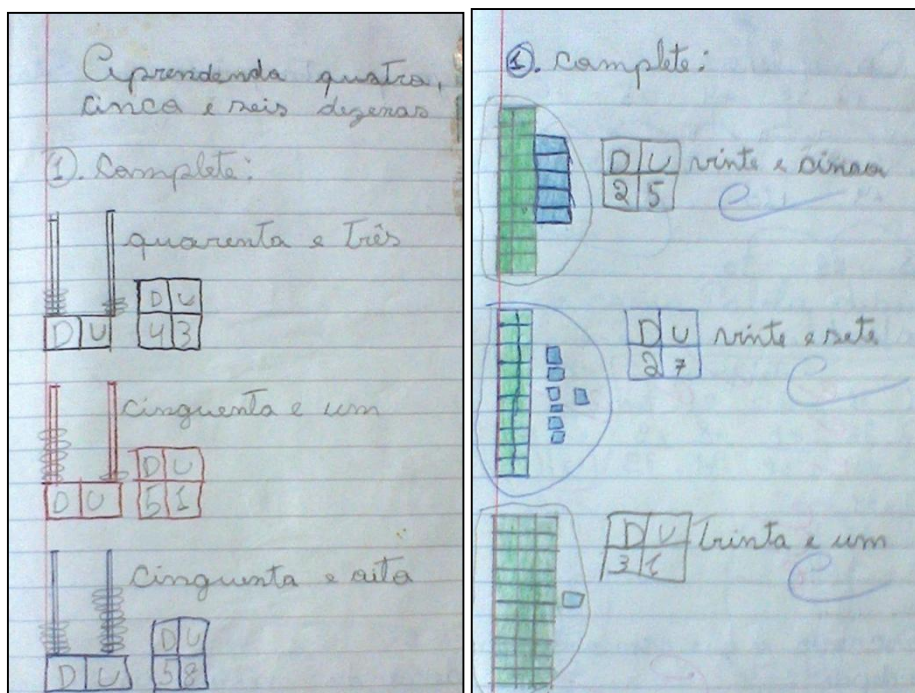 Aprendendo quatro,
cinco e seis dezenas
1. Complete:
quarenta e três
D U
4 3
D U
cinquenta e um
D U
5 1
D U
cinquenta e oito
D U
5 8
D U
1. Complete:
D U vinte e cinco
2 5
D U vinte e sete
2 7
D U trinta e um
3 1